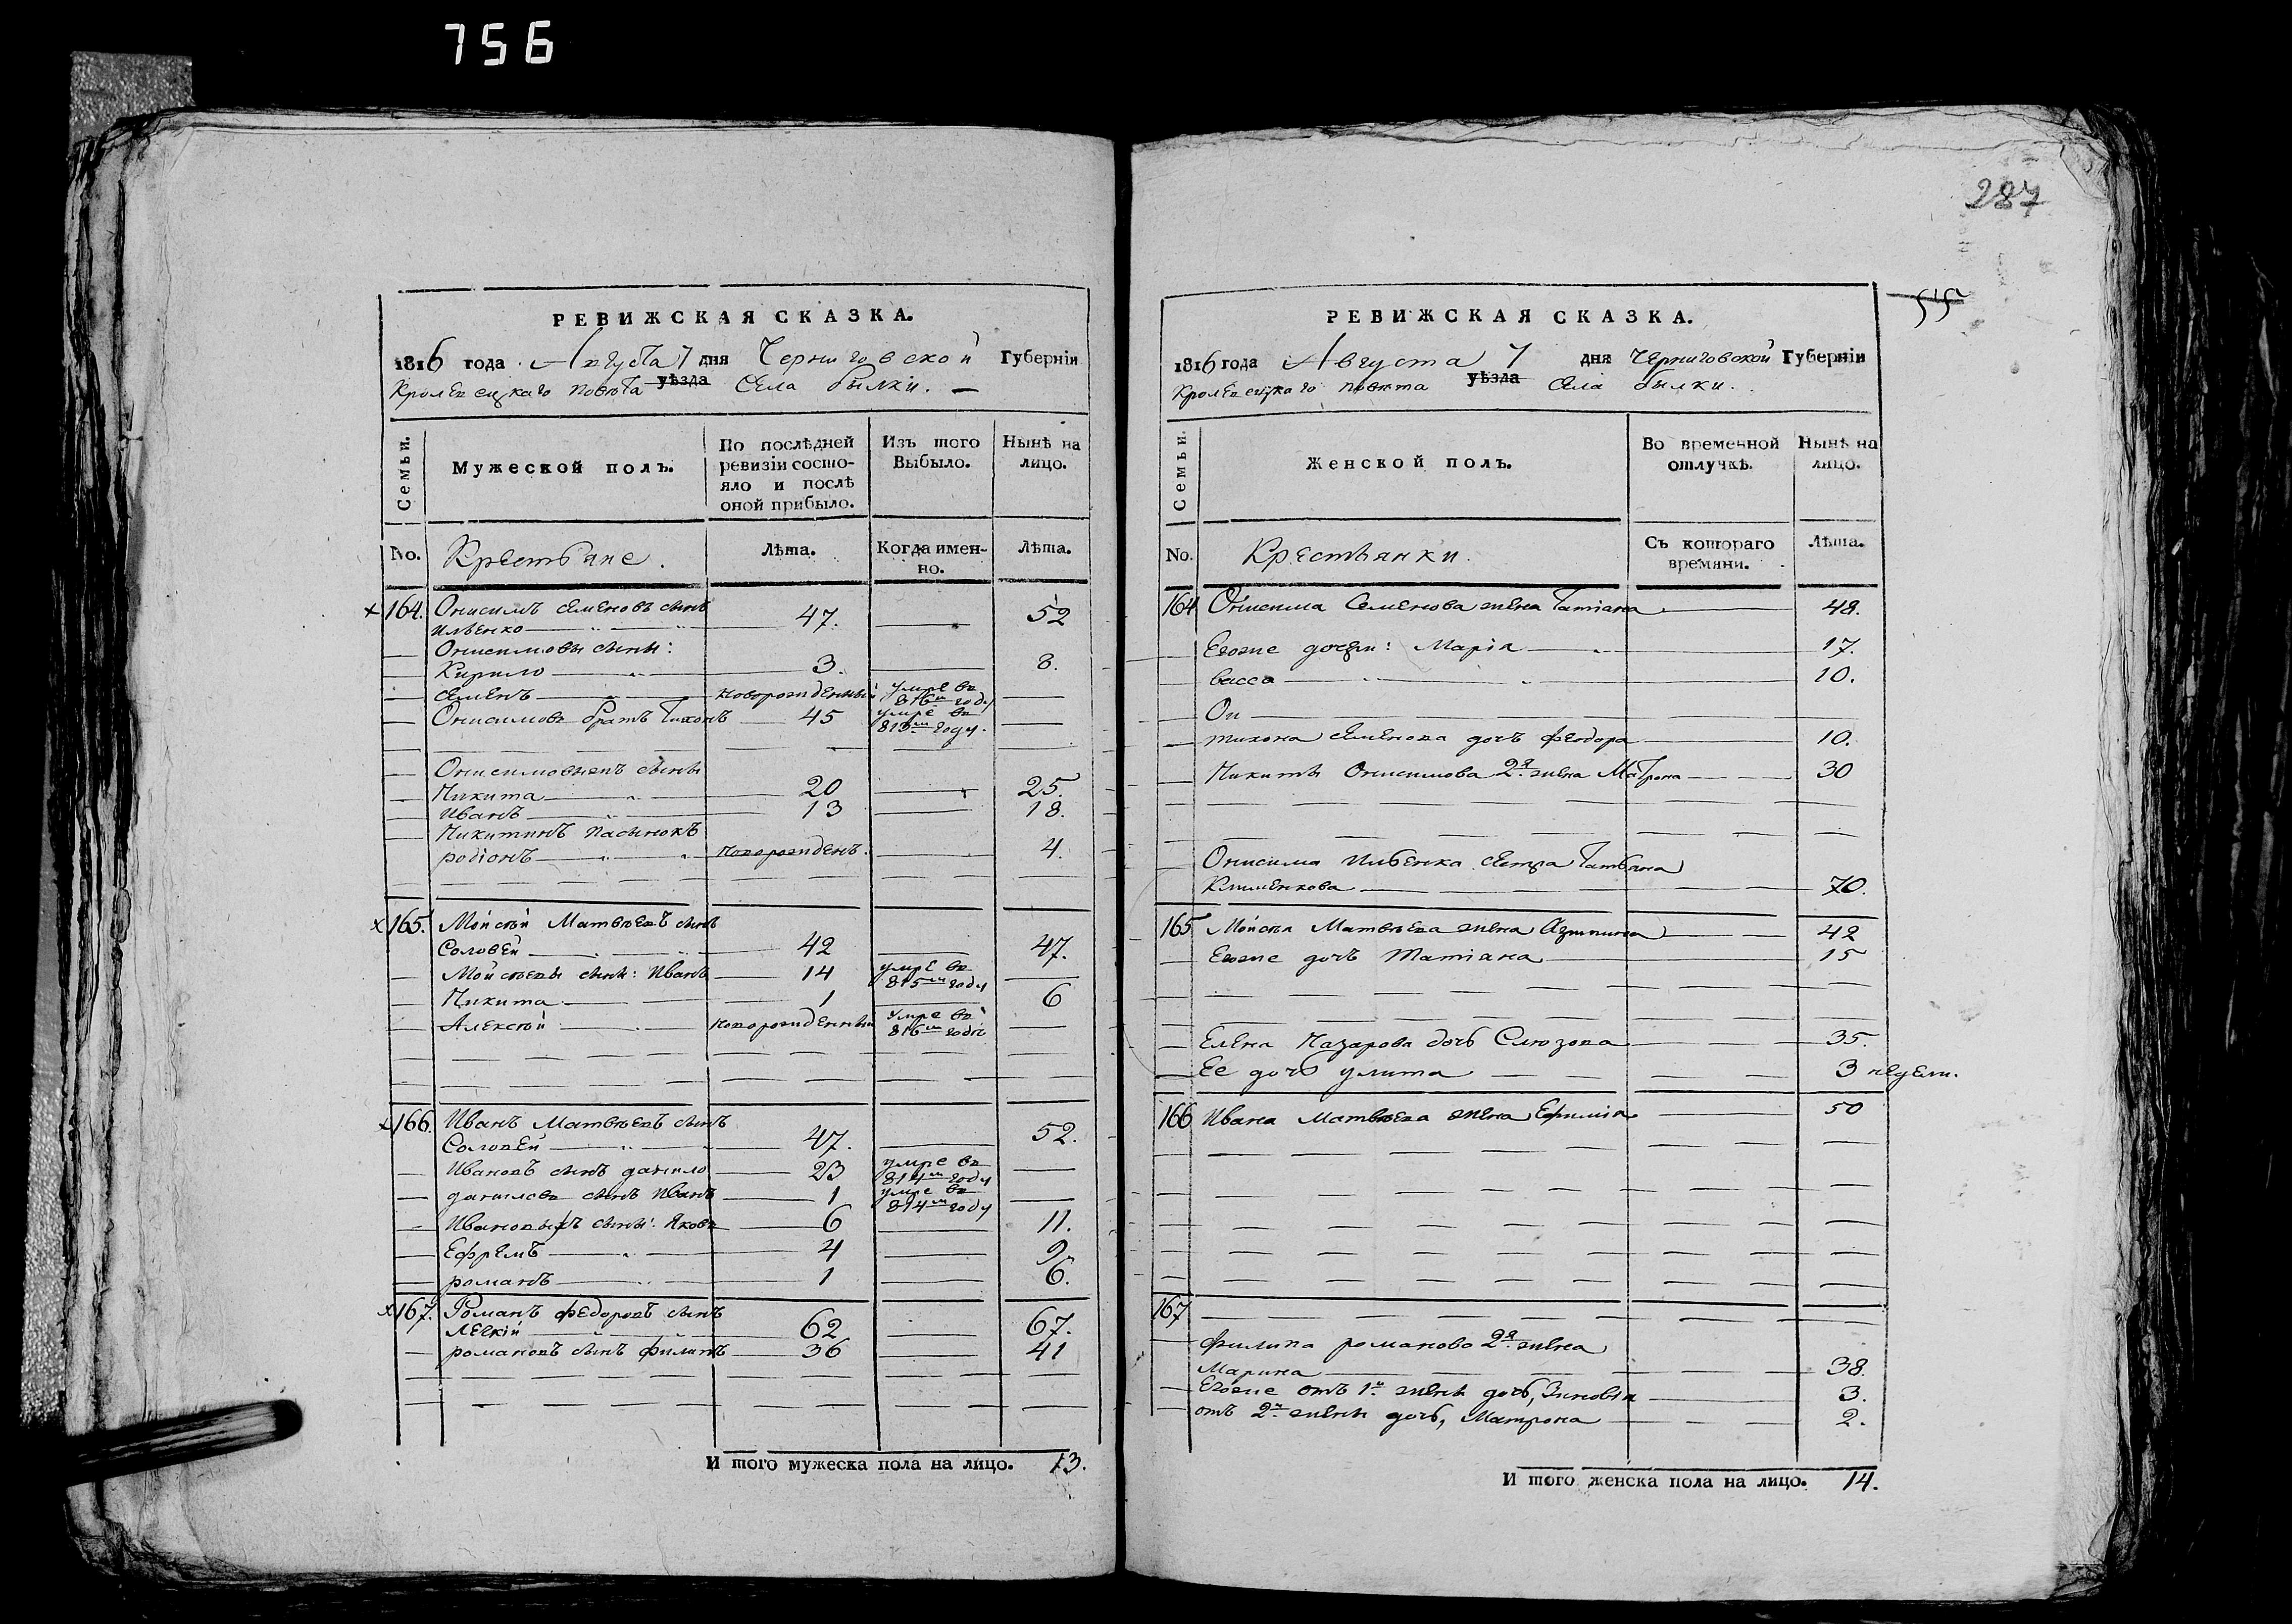 756
287
55
РЕВИЖСКАЯ СКАЗКА.
1816 года Августа 7 дня Черниговской Губерніи
Кролевецкаго повѣта уѣзда Села былки.
Семьи.
Мужеской полъ.
По послѣдней ревизіи состо-
яло и послѣ оной прибыло.
Изъ того Выбыло.
Нынѣ на лицо.
No. Крестьяне. Лѣта. Когда имен-
но. Лѣта.
164. Онисимъ Семеновъ сынъ
Ильенко 47. 52
Онисимовы сыны:
Кирило 3. 8.
Семенъ новорожденный умре въ 816м году
Онисимовъ братъ Тихонъ 45 умре въ 813м году.
Онисимовыхъ сыны
Никита 20 25.
Иванъ 13 18.
Никитинъ пасынокъ
родіонъ новорожденъ. 4.
165. Мойсѣй Матвѣевъ сынъ
Соловей 42 47.
Мойсѣевы сыны: Иванъ 14 умре въ 815м году
Никита 1 6
Алексѣй новорожденный умре въ 816м годѣ
166. Иванъ Матвѣевъ сынъ
Соловей 47. 52.
Ивановъ сынъ данило 23 умре въ 814м году
даниловъ сынъ Иванъ 1 умре въ 814м году
Ивановыхъ сыны: Яковъ 6 11.
Ефремъ 4 9.
романъ 1 6.
167. Романъ Федоровъ сынъ
Легкій 62 67.
романовъ сынъ филипъ 36 41
И того мужеска пола на лицо. 13.
РЕВИЖСКАЯ СКАЗКА.
1816 года Августа 7 дня Черниговской Губерніи
Кролевецкаго повѣта уѣзда Села былки.
Семьи.
Женской полъ.
Во временной отлучкѣ.
Нынѣ на лицо.
No. Крестьянки. Съ котораго
времяни. Лѣта.
164 Онисима Семенова жена Татіана 48.
Егоже дочери: Марія 17.
васса 10.
Он
тихона Семенова дочь Феодора 10.
Никиты Онисимова 2я жена Матрона 30
Онисима Ильенка сестра Татьяна
Клименкова 70.
165 Мойсѣя Матвѣева жена Агрипина 42
Егоже дочь Татіана 15
Елена Назарова дочь Слюзова 35.
Ее дочь улита 3 недели.
166 Ивана Матвѣева жена Ефимія 50
167
Филипа романова 2я жена
Марина 38.
Егоже отъ 1й жены дочь, Зиновія 3.
отъ 2й жены дочь, Матрона 2.
И того женска пола на лицо. 14.